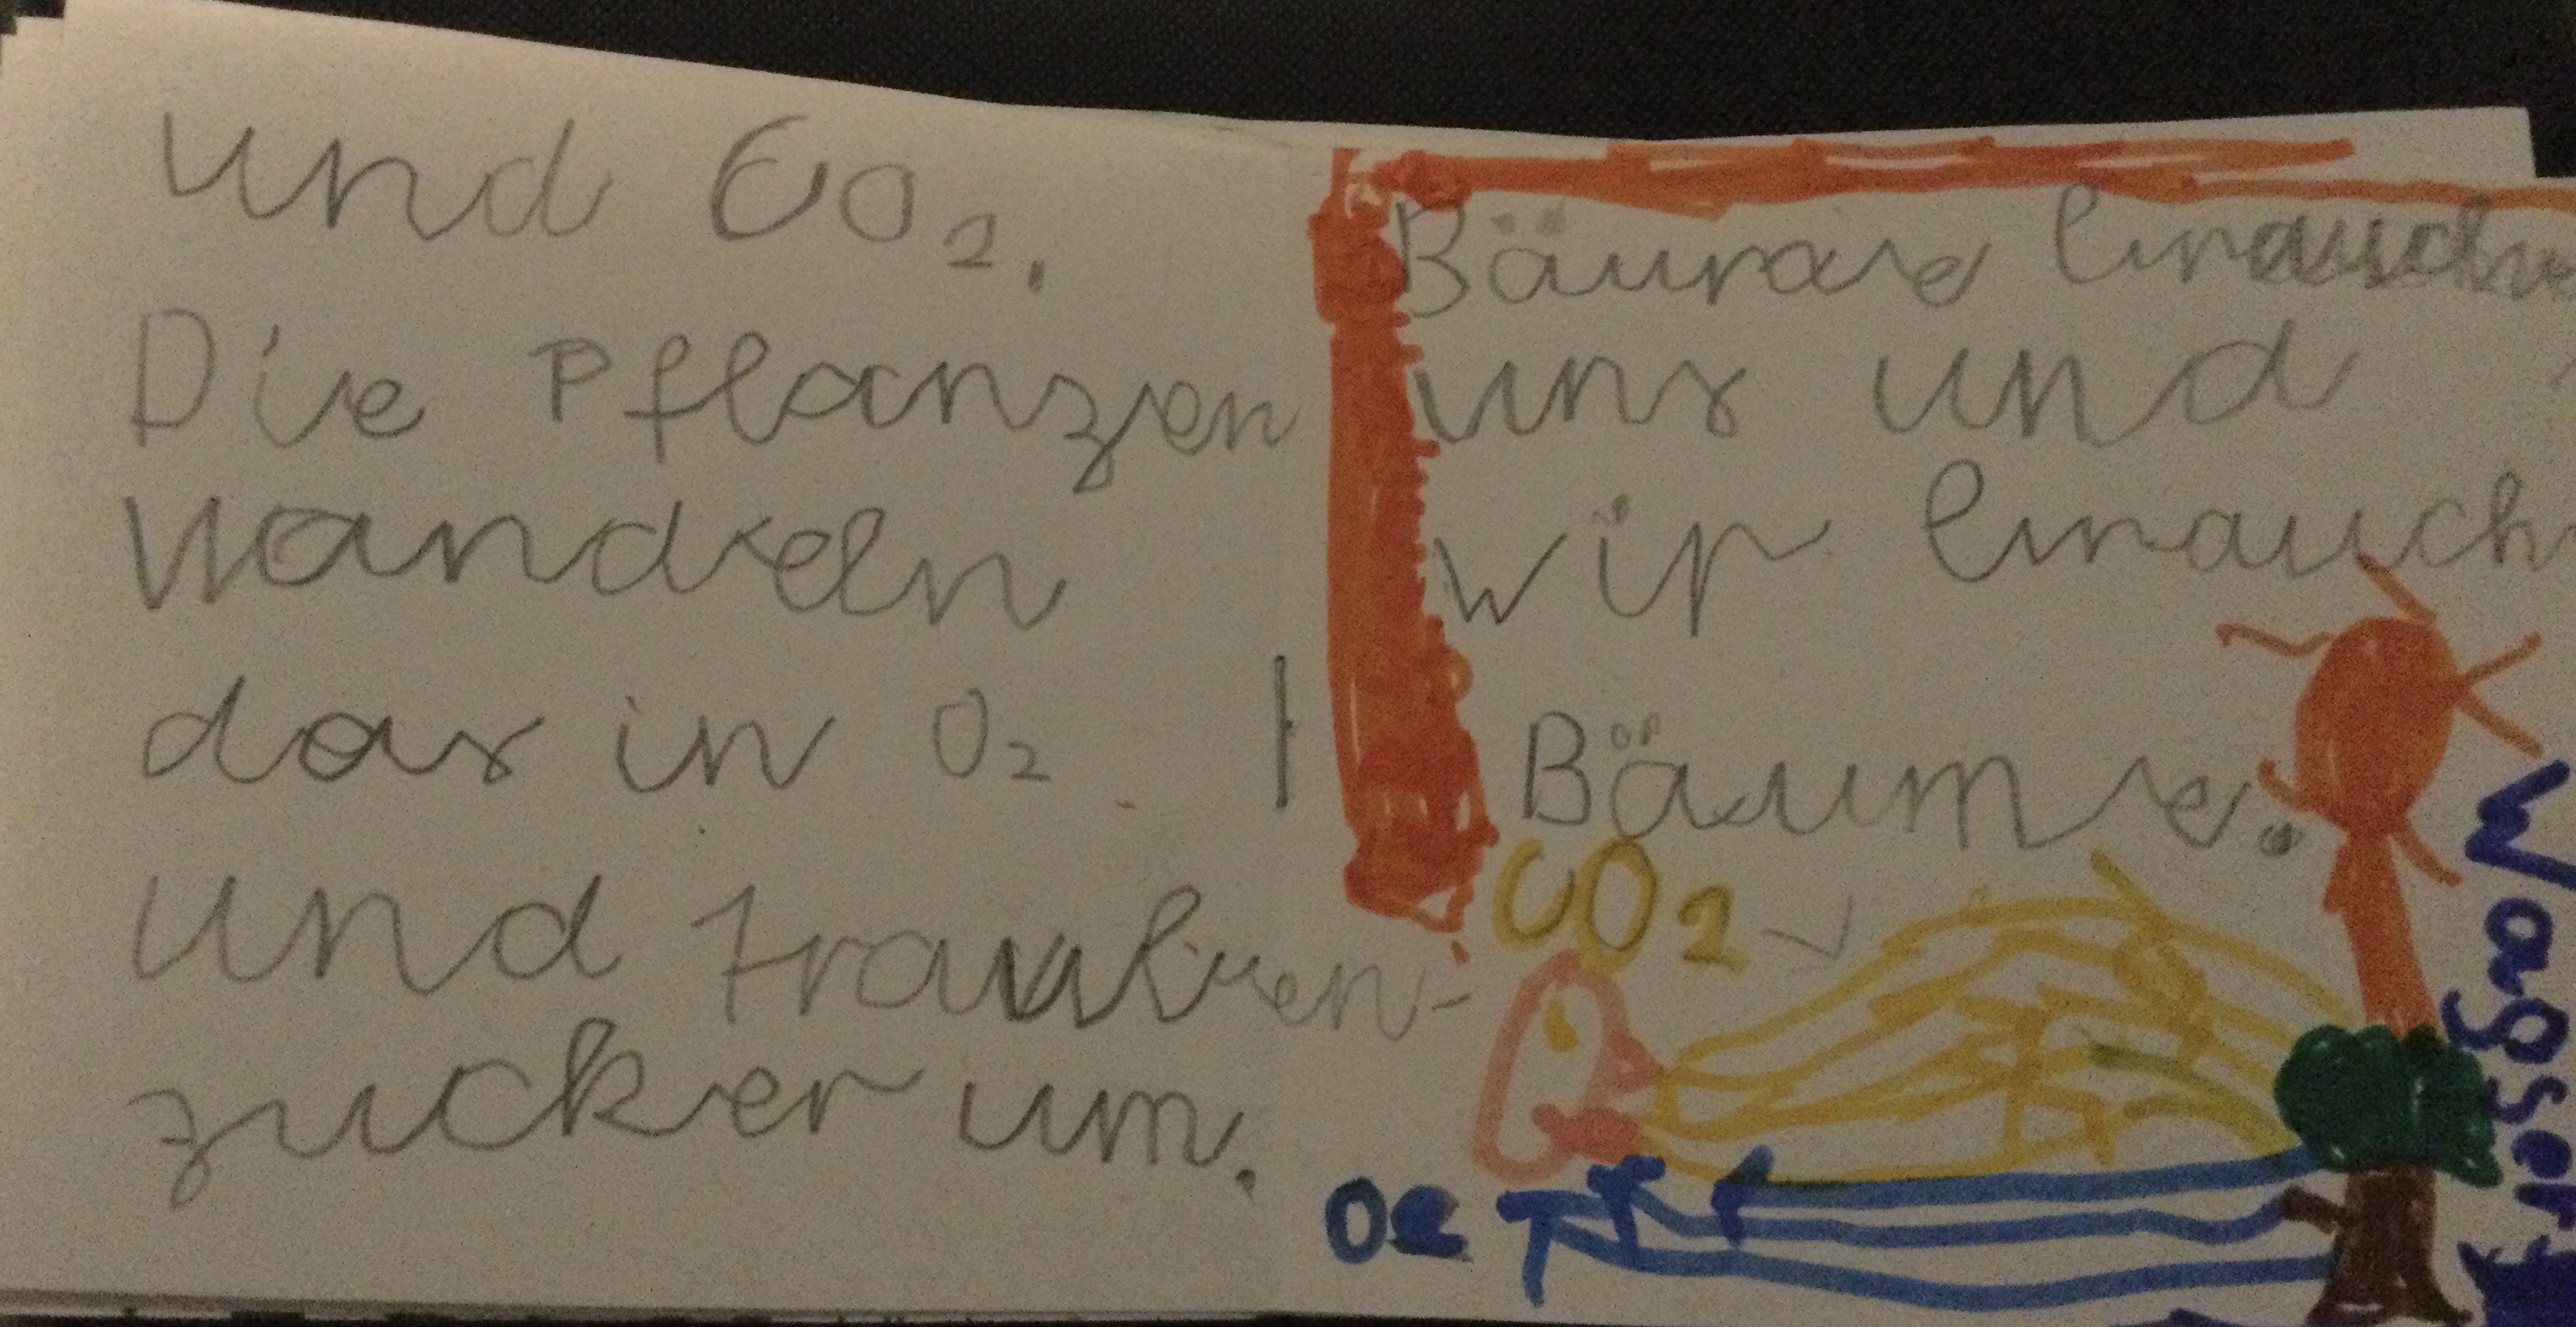 und CO₂.
Die Pflanzen
wandeln
das in O₂
und trauben-
zucker um.
Bäume brauchen
uns und
wir brauch
Bäume.
CO2
O2
Wasser